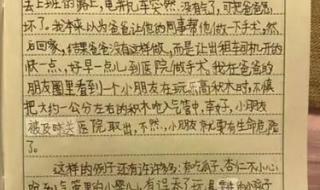 去上班的路上，电开扎车突然 没有了，可是爸爸急
坏了。我本来以为爸爸让他的同事帮他做一下手术，然
后回家，结果爸爸没有这样做，而是让出租车司机开的
快一点，好早一点儿到医院做手术。我在爸爸的
朋友圈里看到一个小朋友在玩乐高积木时，不慎
把大约一公分左右的积木吃入气管中，幸好，小朋友
被及时送医院取出，不然，小朋友就要有生命危险
了。
这样的例子还有许许多多：有吃瓜子、杏仁不小心